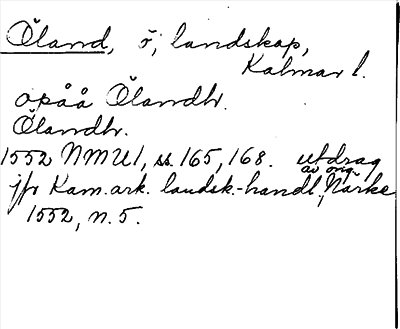 Öland, ö, landskap,
Kalmar l.
opåå Ölandh.
Ölandh.
1552 NMU1, ss. 165, 168. utdrag
av orig.
jfr Kam.ark. landsk.-handl., Närke
1552, n. 5.